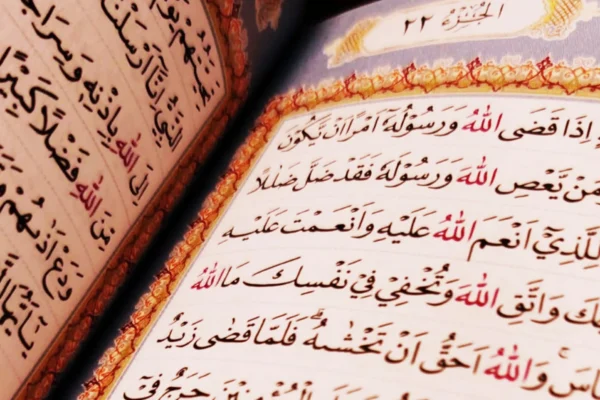 الجزء ٢٢
إِذَا قَضَى اللهُ وَرَسُوْلُهٗٓ اَمْرًا اَنْ يَّكُوْنَ
مَنْ يَّعْصِ اللهَ وَرَسُوْلَهٗ فَقَدْ ضَلَّ ضَلٰلًا
لِلَّذِيْٓ اَنْعَمَ اللهُ عَلَيْهِ وَاَنْعَمْتَ عَلَيْهِ
وَاتَّقِ اللهَ وَتُخْفِيْ فِيْ نَفْسِكَ مَا اللهُ
وَاللهُ اَحَقُّ اَنْ تَخْشٰىهُ ۗ فَلَمَّا قَضٰى زَيْدٌ
الْمُؤْمِنِيْنَ حَرَجٌ فِيْٓ
النَّبِيُّ اِنَّآ اَرْسَلْنٰكَ
اِلَى اللهِ بِاِذْنِهٖ وَسِرَاجًا
مِّنَ اللهِ فَضْلًا كَبِيْرًا
وَدَعْ اَذٰىهُمْ